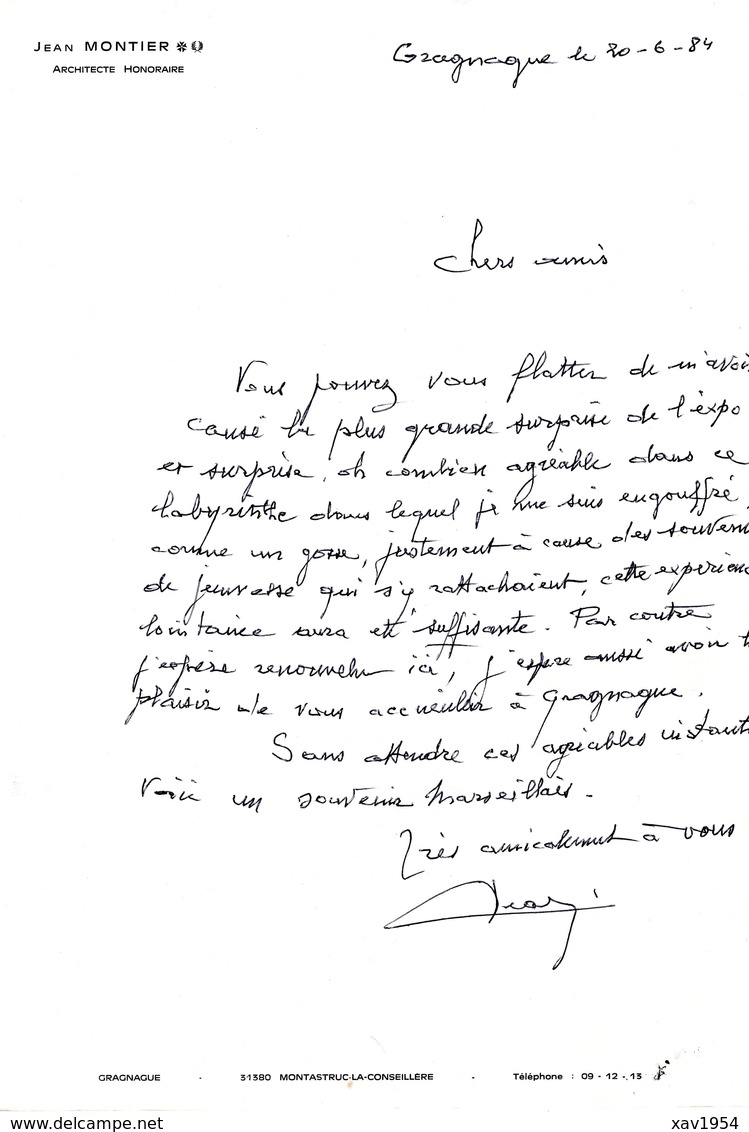 JEAN MONTIER
ARCHITECTE HONORAIRE
Gragnague le 20-6-84
Chers amis
Vous pouvez vous flatter de m'avoir
causé la plus grande surprise de l'expo
et surprise, oh combien agréable dans ce
labyrinthe dans lequel je me suis engouffré,
comme un gosse, justement à cause des souvenirs
de jeunesse qui s'y rattachaient, cette expérience
lointaine aura été suffisante. Par contre
j'espère renouveler ici, j'espère aussi avoir le
plaisir de vous accueillir à Gragnague.
Sans attendre ces agréables instants
Voici un souvenir Marseillais.
Très amicalement à vous
GRAGNAGUE - 31380 MONTASTRUC-LA-CONSEILLÈRE - Téléphone : 09 - 12 - 13
Delcampe.net
xav1954